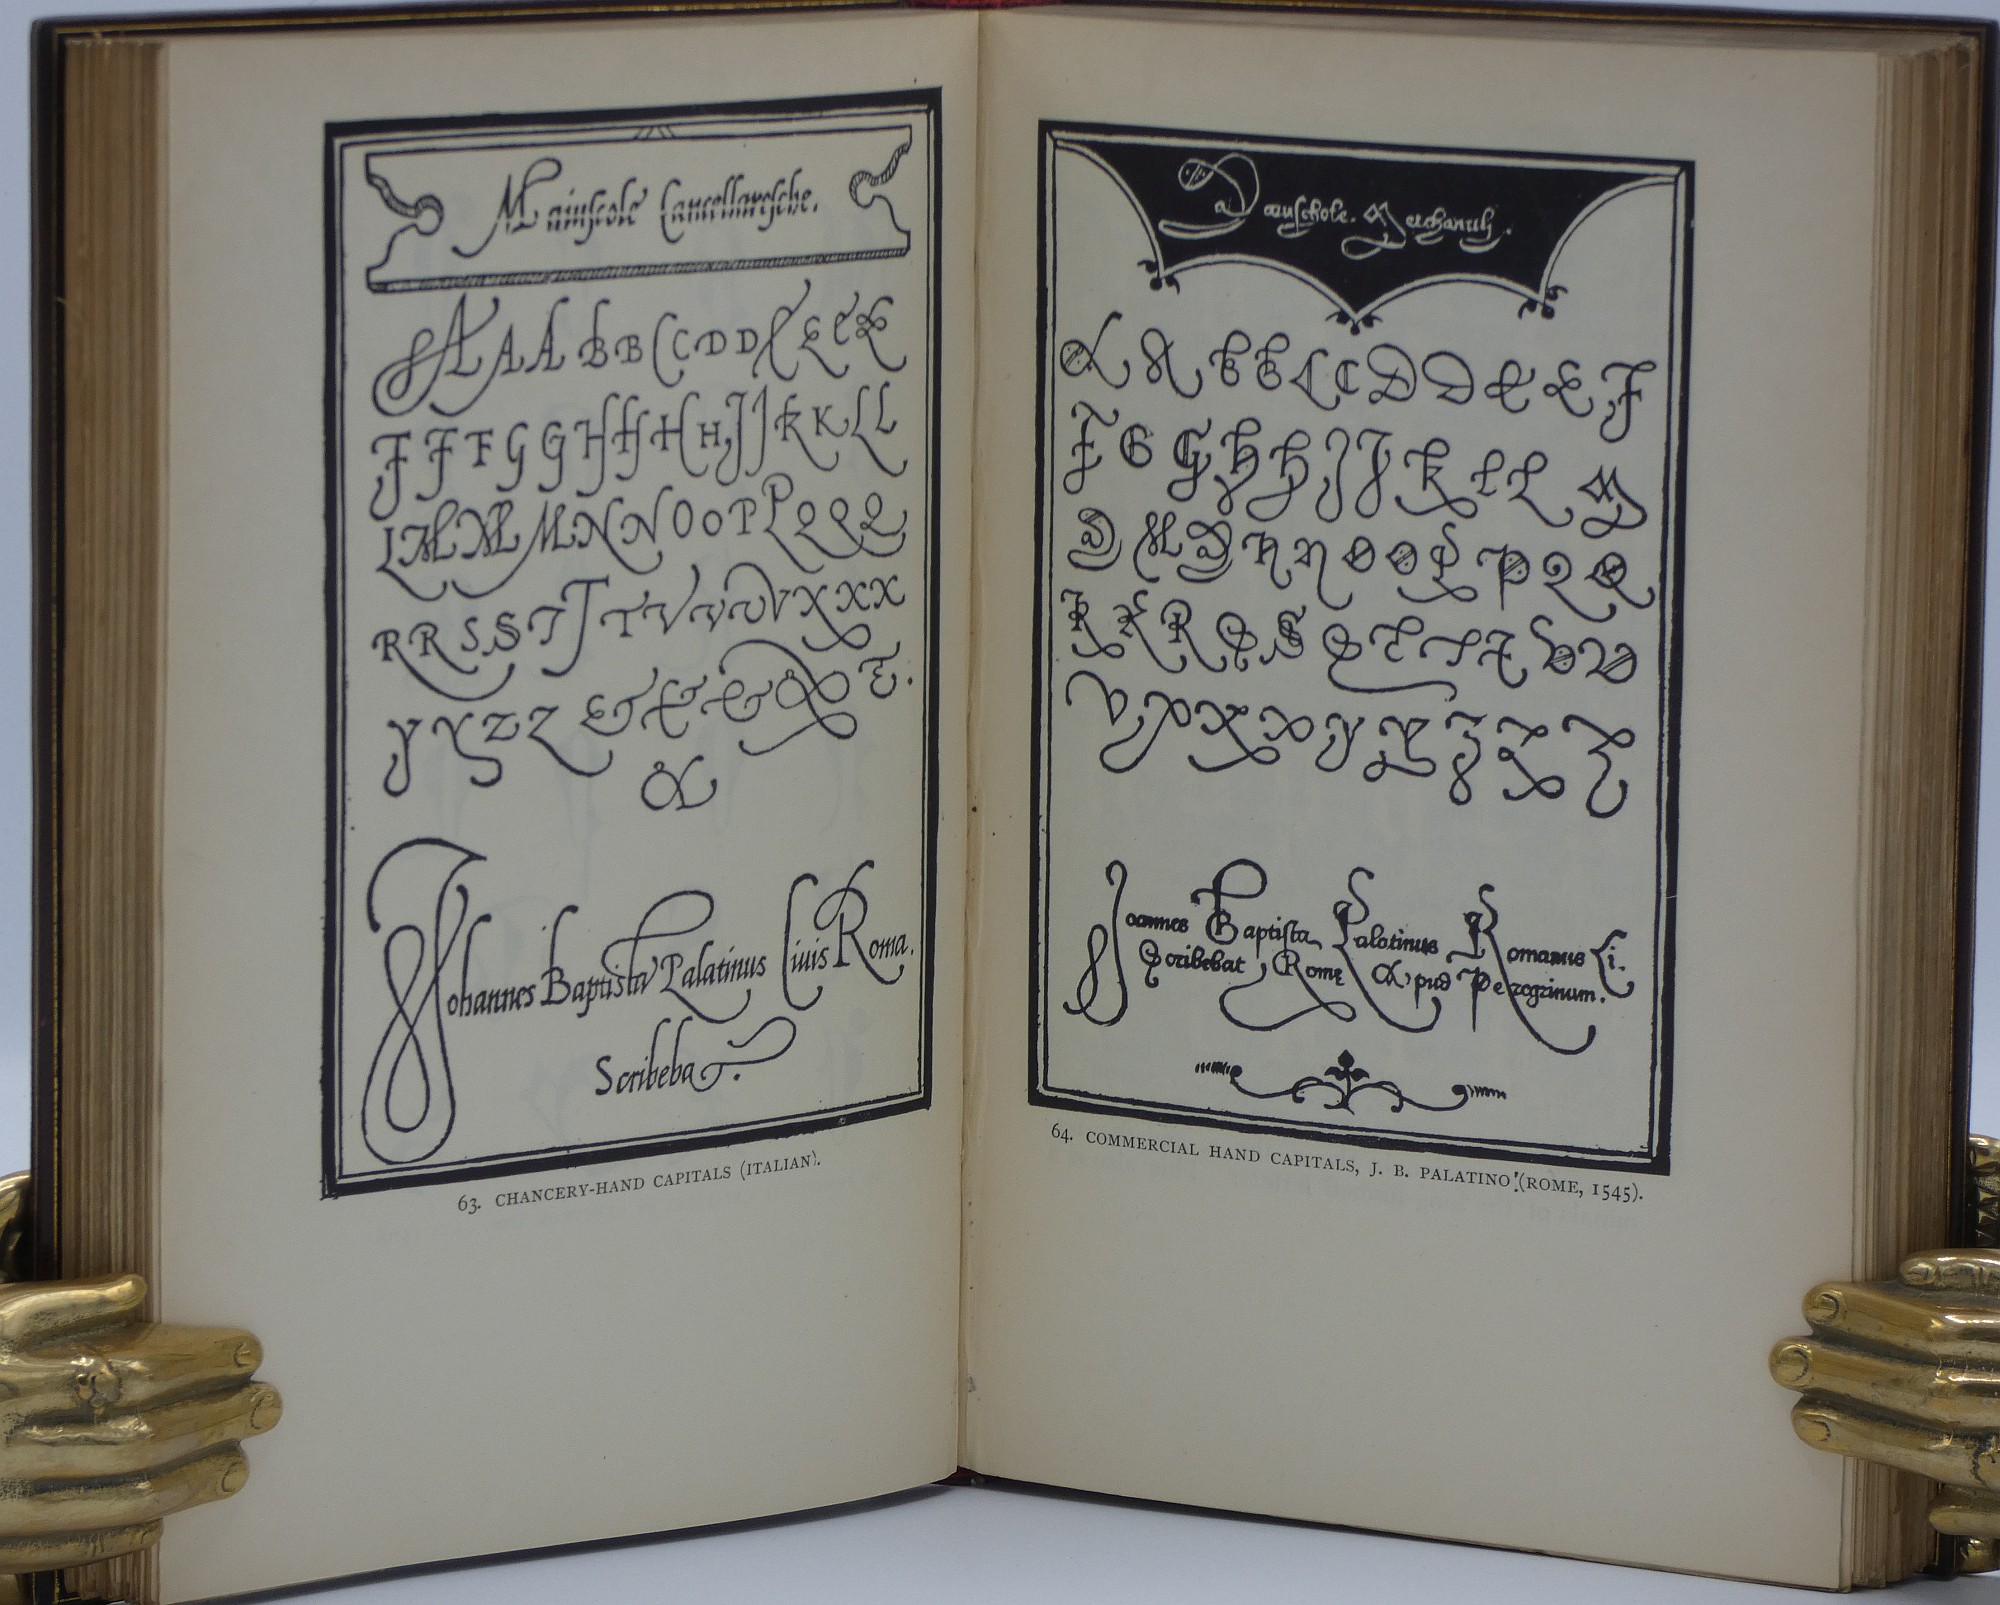 Maiuscole Cancellaresche.
A A A B B C C D D E E E E
F F F F G G H H H H J J K K L L
L M M M N N O O P P Q Q Q
R R S S T T T V V V V X X X
Y Y Z Z & & & & &.
&
Johannes Baptista Palatinus Civis Roma.
Scribebat.
63. CHANCERY-HAND CAPITALS (ITALIAN).
A A B B C C D D E E F
F G G H H J J K L L M
M M M N N O O P P Q Q
R R R S S S T T T V V
V X X X Y Y Z Z Z
Joannes Baptista Palatinus Romanus Ci.
Scribebat Romę Apud Peregrinum.
64. COMMERCIAL HAND CAPITALS, J. B. PALATINO (ROME, 1545).